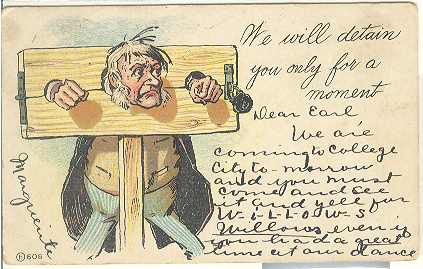 We will detain
you only for a
moment
Dear Earl
We are
coming to College
City to-morrow
and you must
come and see
it and yell for
W-i-L-L-O-W-S
Willows even if
you had a great
time at our dance
Marguerite
606